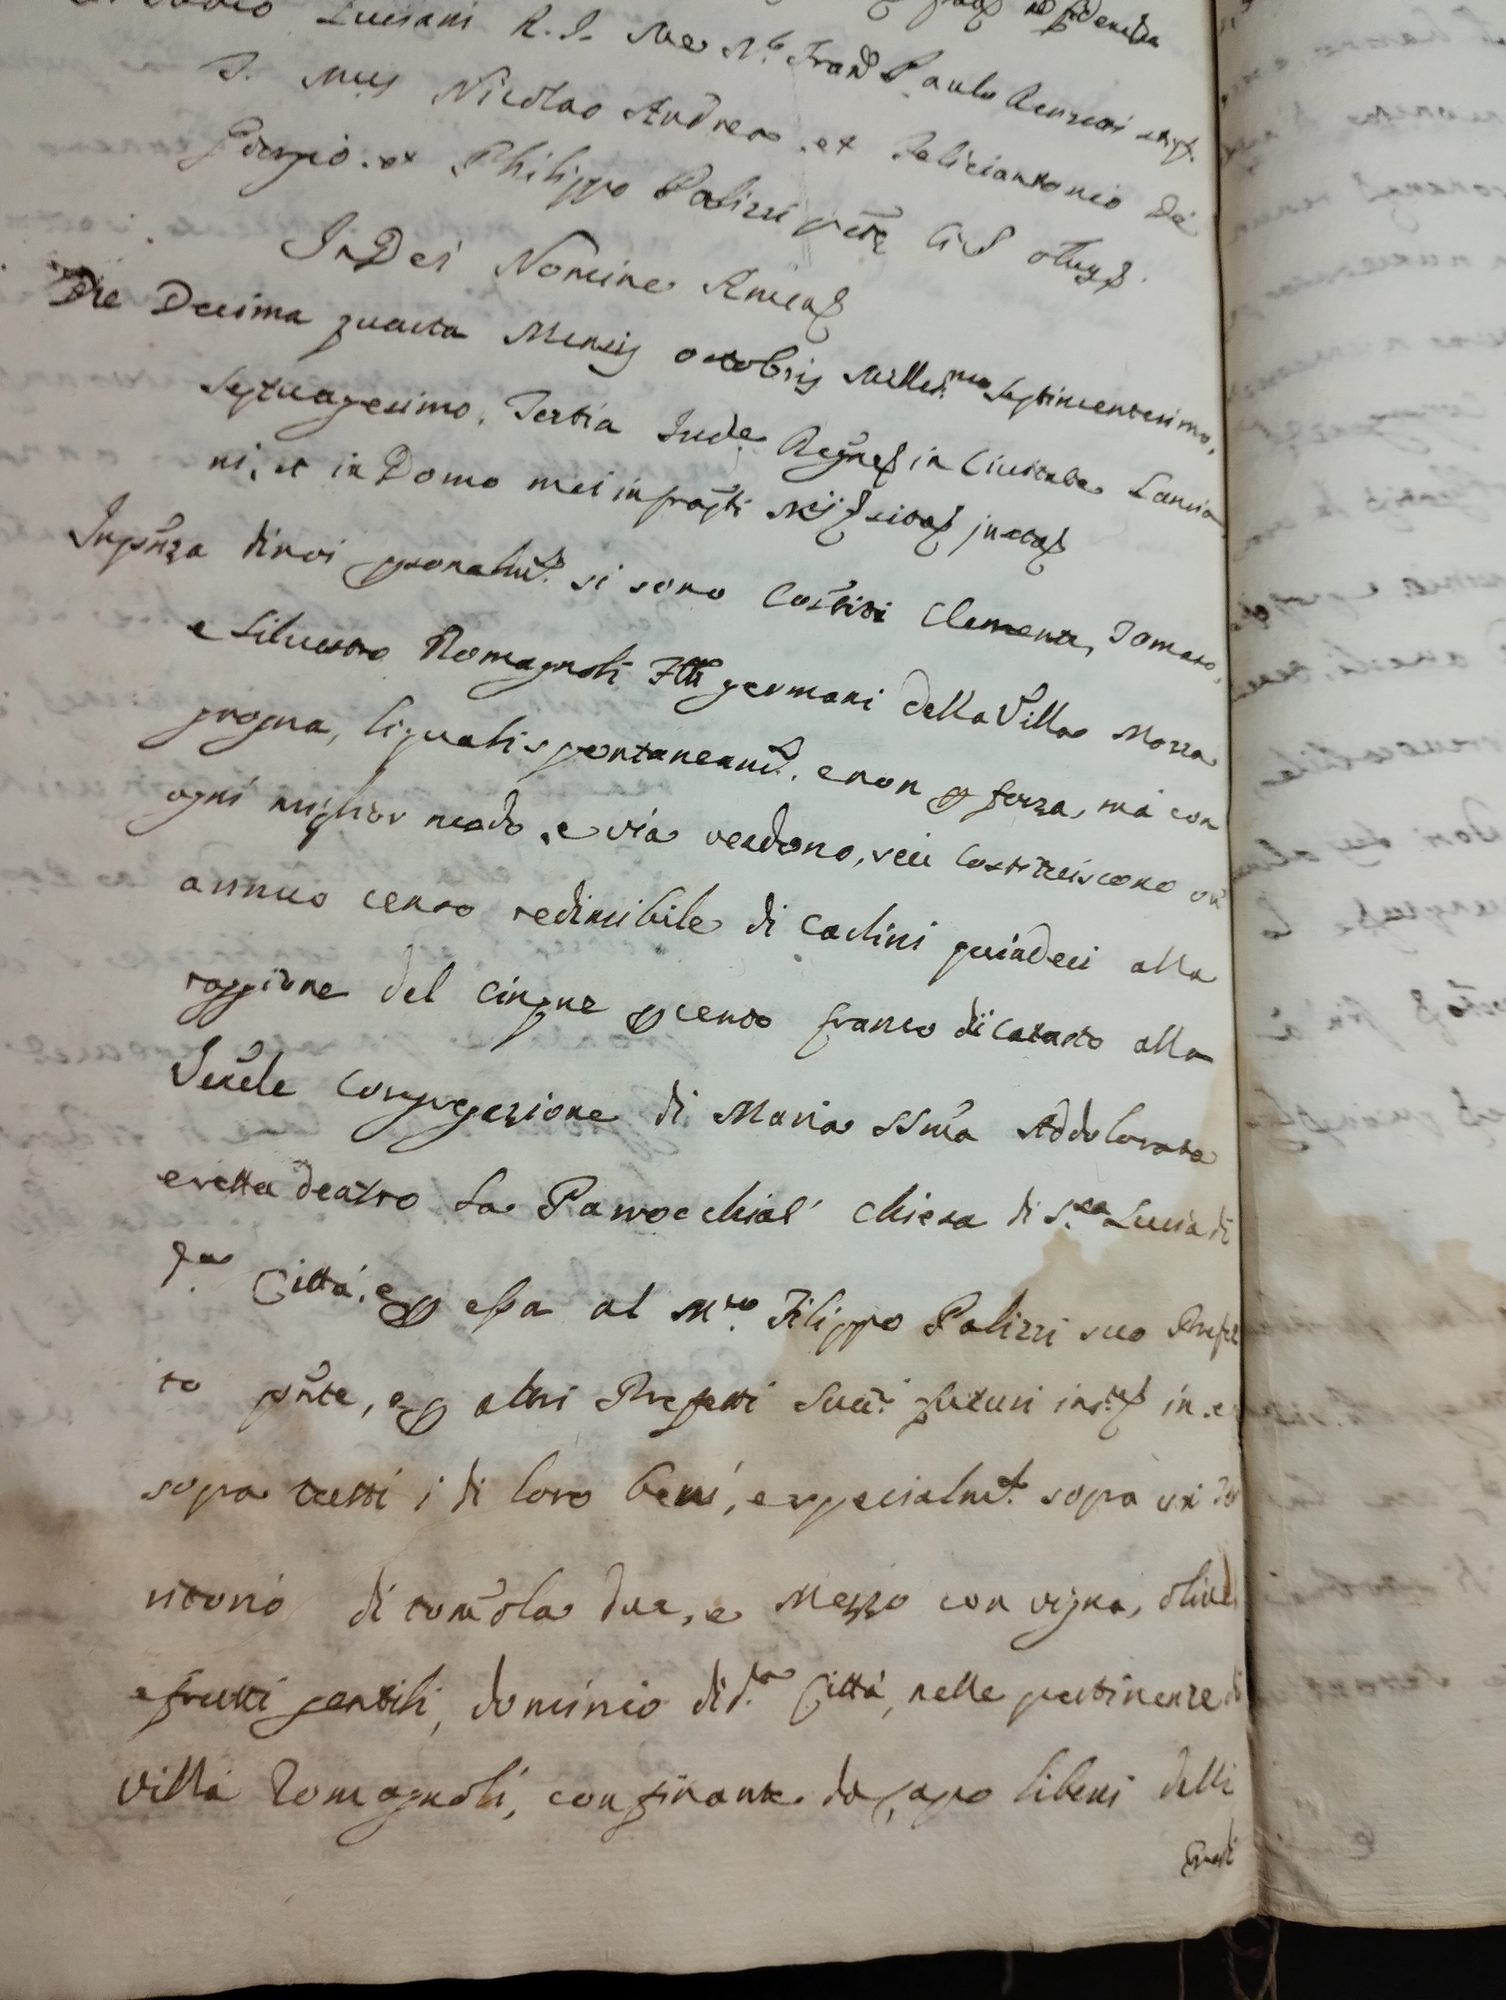 Luciani R. I. Me N.º Fran.º Paulo Renzetti
Nicolao Andrea, et Feliciantonio De
Giorgio, et Philippo Palizzi
In Dei Nomine Amen
Die Decima quarta Mensis octobris Milles.mo Septincentesimo,
septuagesimo, Tertia Inde Regnes in Civitate Lancia
ni, et in Domo mei infras̃ti sitas juxtas
Inpñza di noi psonalmt̃e si sono Costiti Clemente, Tomaso,
e Silvestro Romagnoli Flli germani della Villa Mozza
grogna, li quali spontaneamt̃e, e non p forza, mà con
ogni miglior modo, e via vendono, seu costituiscono un
annuo censo redimibile di Carlini quindeci alla
raggione del cinque p cento franco di Catasto alla
Veñle Congregazione di Maria SSma Addolorata
eretta dentro la Parrocchial' Chiesa di S.ta Lucia di
d.ta Città, e p essa al M.ro Filippo Palizzi suo Prefet
to pñte, e p altri Prefetti Succ.i futuri in
sopra tutti i di loro beni, e specialmt̃e sopra un Ter
ritorio di tom̃ola due, e Mezzo con vigna, olive
e frutti gentili, dominio di d.ta Città, nelle pertinenze di
villa Romagnoli, confinante da capo li beni delli